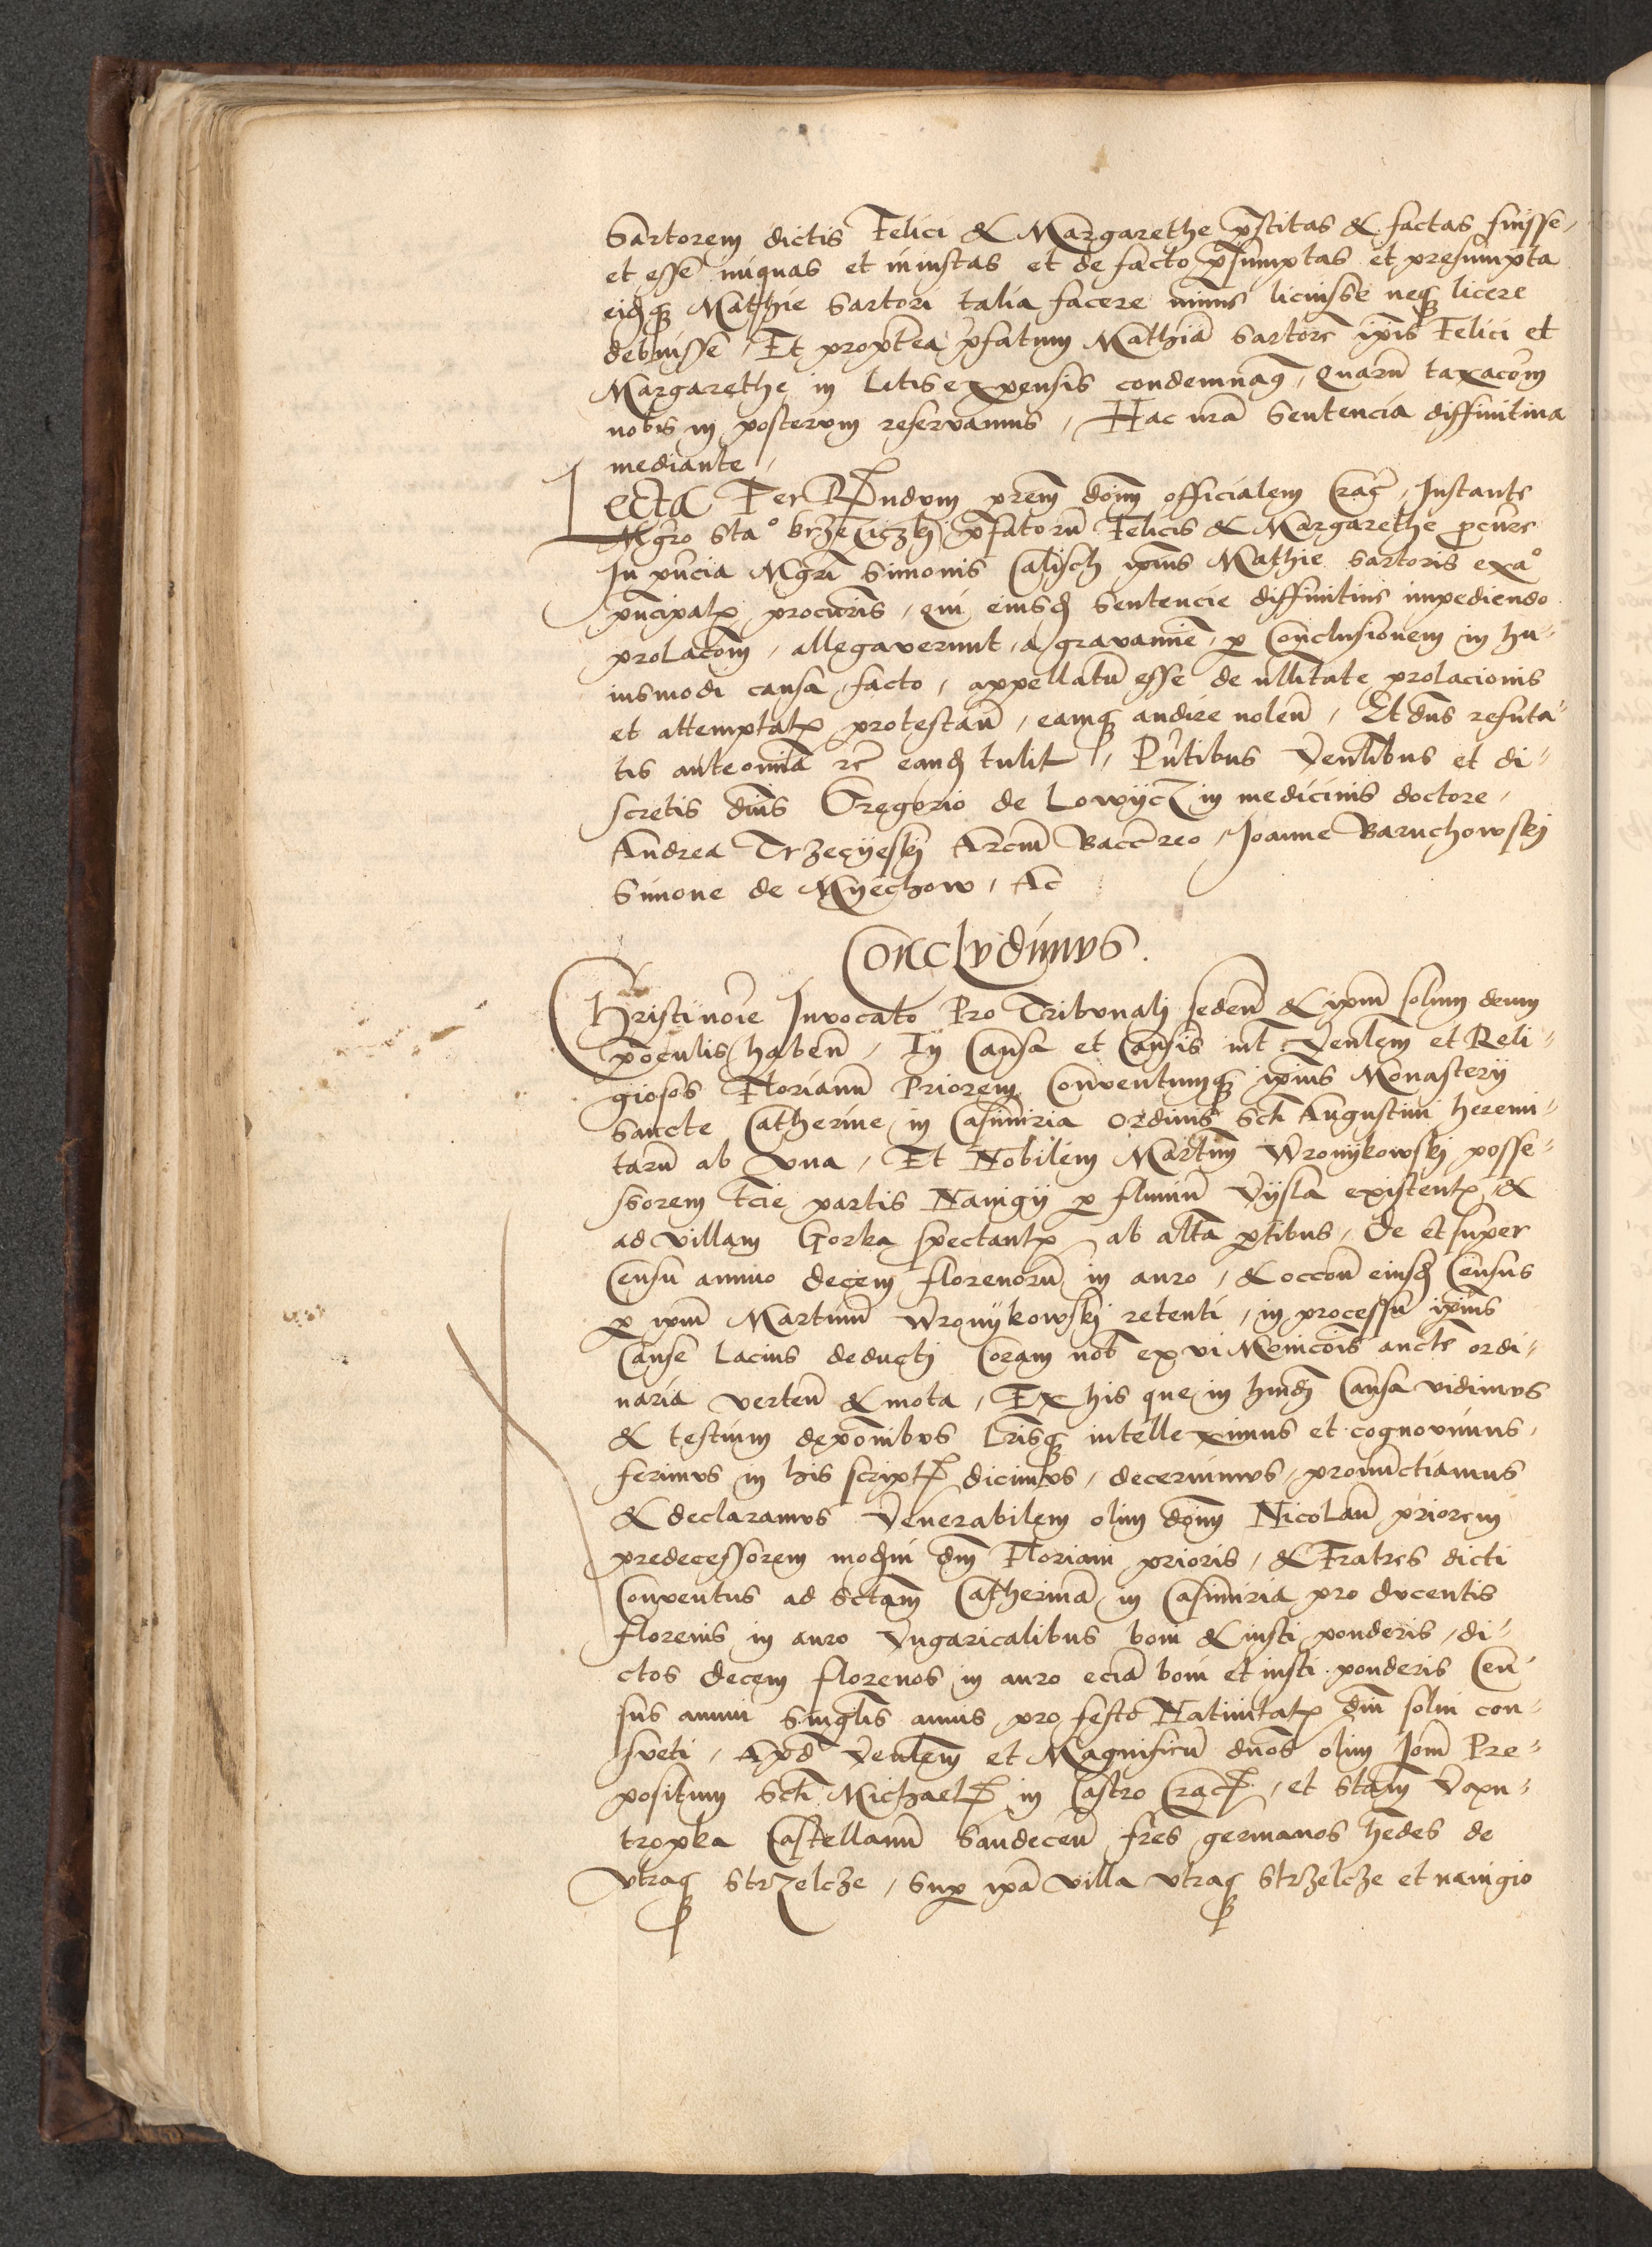 Sartorem dictis Felici & Margarethe p̃stitas & factas fuisse,
et esse iniquas et iniustas et de facto p̃sumptas et presumpta
eidq3 Mathie Sartori talia facere minus licuisse neq3 licere
debuisse, Et propterea p̃fatum Mathiã Sartorẽ ip̃is Felici et
Margarethe in Litis expensis condemnaq3, quarũ taxacõm
nobis in posterum reservamus, Hac nrã Sentencia diffinitiva
mediante,
Lecta Fer R̃ndum prem̃ dom̃ officialem Crac̃, Instante
Mgro Sta° Brzeziczkij p̃fatorũ Felicis & Margarethe procũre
In pñcia Mgri Simonis Calisch ip̃ius Mathie Sartoris exa°
pñcipal procuris, qui eiusd̃ Sentencie diffinitive impediendo
prolacõm, allegaverunt, a gravamine, p Conclusionem in hu-
iusmodi causa, facto, appellatũ esse de nllitate prolacionis
et attemptat protestañ, eamq3 audire noleñ, Et dñs refuta-
tis anteomia rc̃ eand̃ tulit, Pñtibus Veñlibus et di-
scretis dñis Gregorio de Lowÿcz in medicinis doctore,
Andrea Trzeçÿeskÿ Arcm̃ Bacc̃reo, Joanne Baruchowskj
Simone de Mÿechow, Ac̃
Conclvdimvs.
Christi noĩe Invocato Pro Tribvnalj sedeñ & ip̃m solum deum
p oculis habeñ, In Causa et Causis int Veñlem et Reli-
giosos Florianũ Priorem Conventumq3 ip̃ius Monasterÿ
Sancte Catherine in Casimiria ordinis Scti Augustini heremi-
tarũ ab vna, Et Nobilem Martinũ Wronÿkowskj posse-
ssorem tcie partis Navigÿ p fluviũ Vÿsla existent &
ad villam Gorka spectant ab altã ptibus, de et super
Censu annuo decem florenorũ in auro, & occõne eiusd̃ Census
p ip̃m Martinũ Wronÿkowskj retenti, in processu ip̃ius
Cause Lacius deductj Coram nob̃ ex vi Monicõis aucte ordi-
naria verteñ & mota, Ex his que in hmõi Causa vidimvs
& testium depõnibvs Lrisq3 intelleximus et cognovimus,
ferimvs in his script dicimvs, decernimvs, pronunctiamus
& declaramvs Venerabilem olim dom̃ Nicolaũ priorem
predecessorem mod̃ni dñi Floriani prioris, & Fratres dicti
Conventus ad Sctam Catherinã in Casimiria pro dvcentis
florenis in auro Vngaricalibus boni & iusti ponderis, di-
ctos decem florenos in auro eciã boni et iusti ponderis Ceñ-
sus annui singlis annis pro festo Nativitat dñi solvi con-
sveti, Apd Veñlem et Magnificũ dños olim Joãm Pre-
positum Scti Michael in Castro Crac̃, et Stam̃ Vapn-
tropka Castellanũ Sandeceñ frẽs germanos hẽdes de
Vtraq3 Strzelcze, Sup ip̃a Villa vtraq3 Strzelcze et navigio